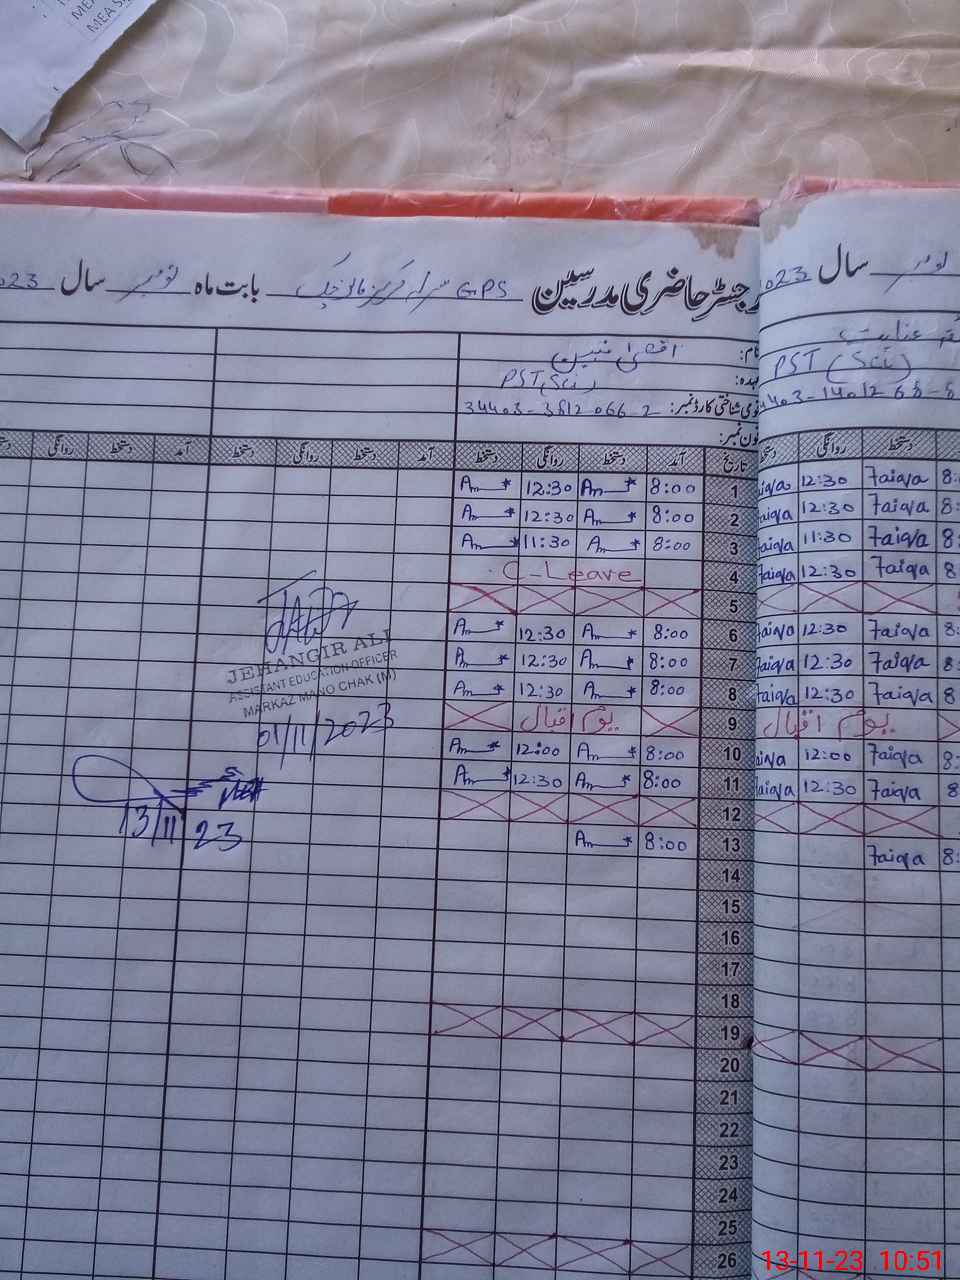 MEA
MEA S
رجسٹر حاضری مدرسین GPS سرائے بابت ماہ نومبر سال 2023
سال نومبر
023
نام:
عہدہ: PST (Sci)
قومی شناختی کارڈ نمبر: 34403-3812066-2
فون نمبر:
عنایت
PST (Sci)
تاریخ آمد دستخط روانگی دستخط آمد دستخط روانگی دستخط آمد دستخط روانگی
دستخط روانگی
1 8:00 Am 12:30 Am
2 8:00 Am 12:30 Am
3 8:00 Am 11:30 Am
4 C-Leave
5
6 8:00 Am 12:30 Am
7 8:00 Am 12:30 Am
8 8:00 Am 12:30 Am
9 یوم اقبال
10 8:00 Am 12:00 Am
11 8:00 Am 12:30 Am
12
13 8:00 Am
14
15
16
17
18
19
20
21
22
23
24
25
26
8: Faiqa 12:30 aiqa
8: Faiqa 12:30 Faiqa
8: Faiqa 11:30 Faiqa
8: Faiqa 12:30 Faiqa
8: Faiqa 12:30 Faiqa
8: Faiqa 12:30 Faiqa
8: Faiqa 12:30 Faiqa
یوم اقبال
8: Faiqa 12:00 aiqa
8 Faiqa 12:30 Faiqa
8: Faiqa
JEHANGIR ALI
ASSISTANT EDUCATION OFFICER
MARKAZ MANO CHAK (M)
01/11/2023
13/11/23
13-11-23 10:51